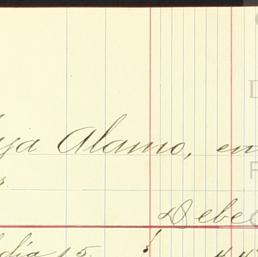 ja Alamo, en
s
Debe
día 15.